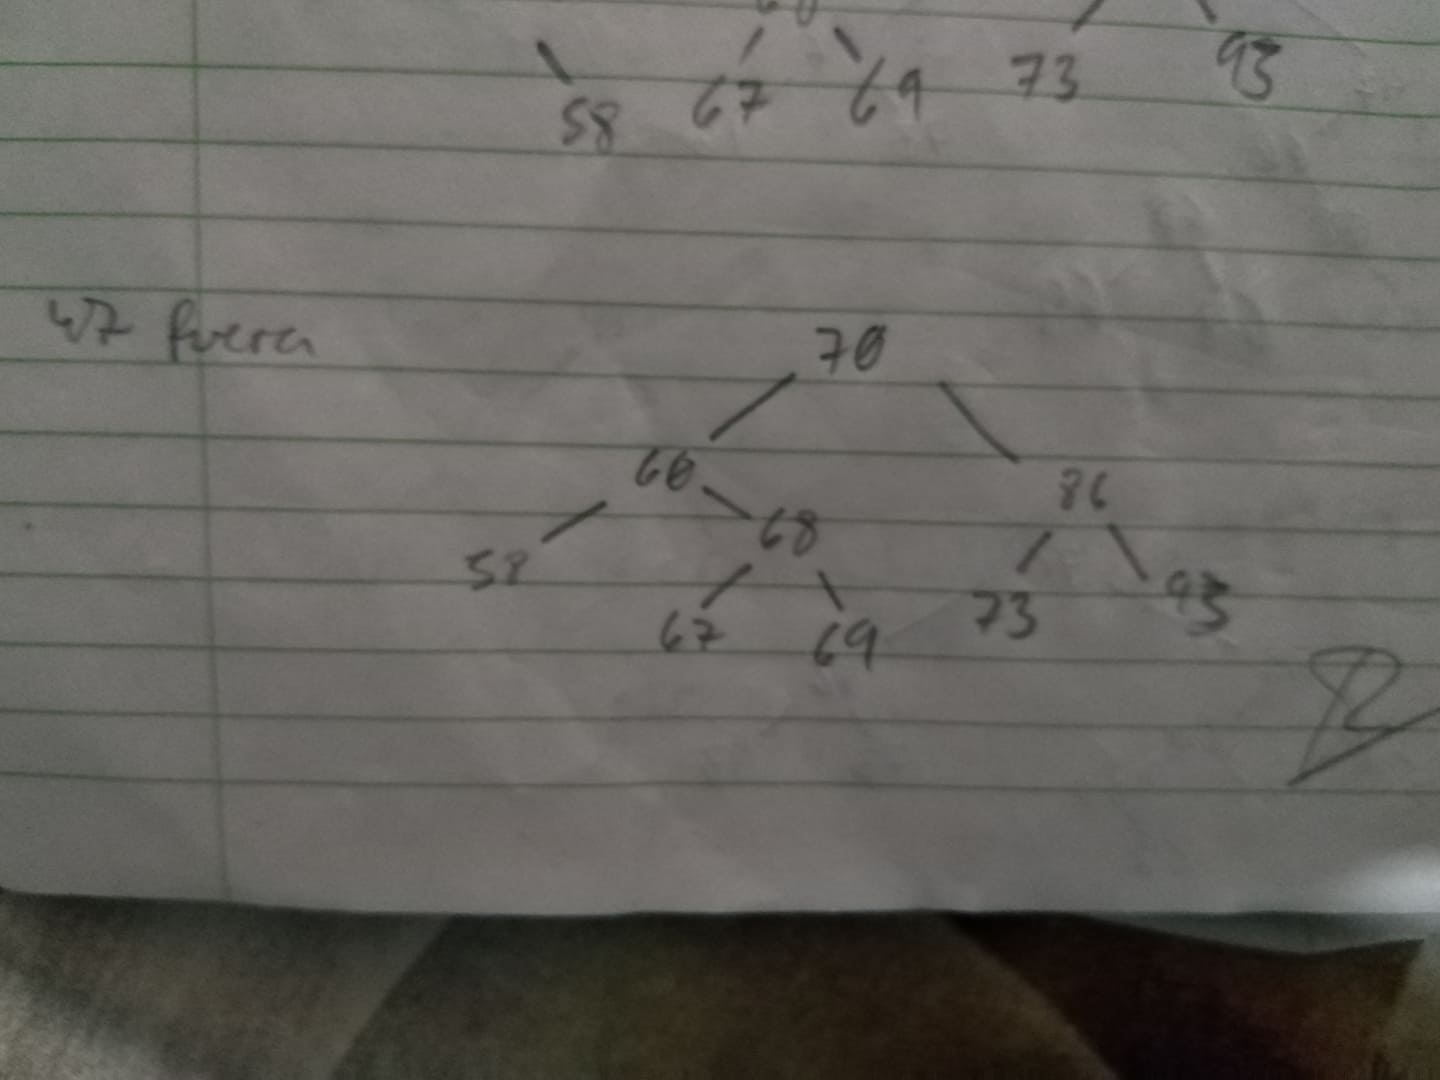 58 67 69 73 93
47 fuera
70
60 86
68
58
73 93
67 69